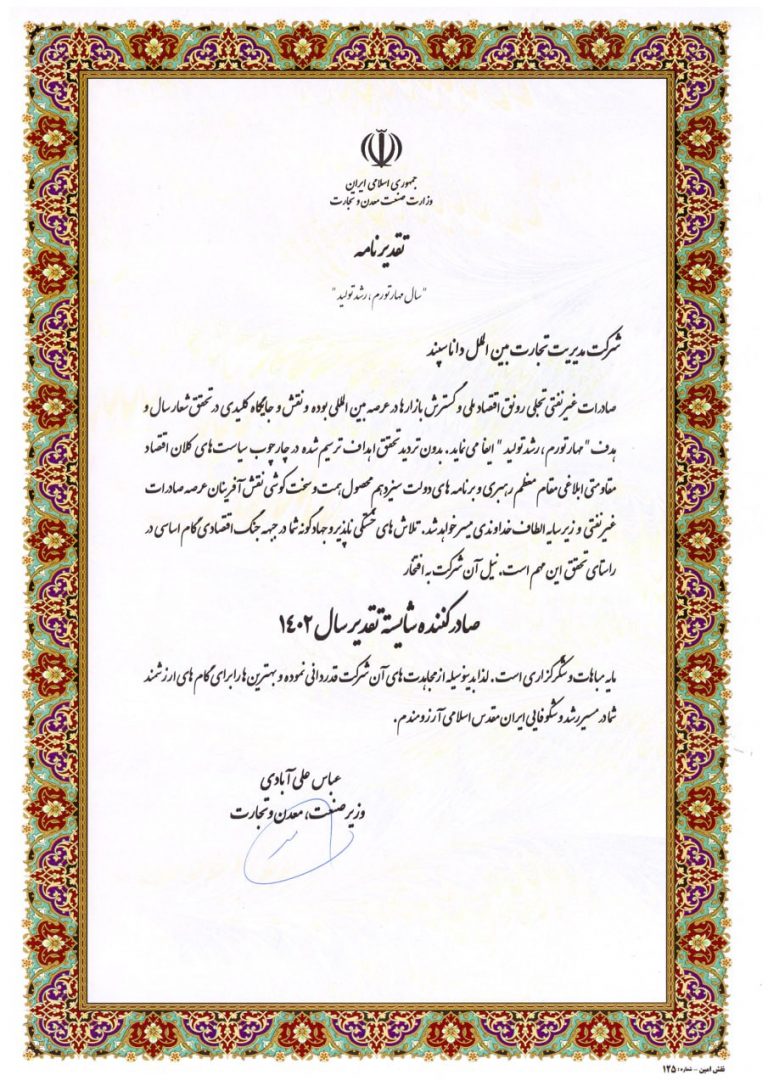 جمهوری اسلامی ایران
وزارت صنعت معدن و تجارت
تقدیرنامه
"سال مهار تورم، رشد تولید"
شرکت مدیریت تجارت بین الملل داناسپند
صادرات غیرنفتی تجلی رونق اقتصاد ملی و گسترش بازارها در عرصه بین المللی بوده و نقش و جایگاه کلیدی در تحقق شعار سال و
هدف "مهار تورم، رشد تولید" ایفا می نماید. بدون تردید تحقق اهداف ترسیم شده در چارچوب سیاست های کلان اقتصاد
مقاومتی ابلاغی مقام معظم رهبری و برنامه های دولت سیزدهم محصول همت و سخت کوشی نقش آفرینان عرصه صادرات
غیرنفتی و زیر سایه الطاف خداوندی میسر خواهد شد. تلاش های خستگی ناپذیر و جهادگونه شما در جبهه جنگ اقتصادی گام اساسی در
راستای تحقق این مهم است. نیل آن شرکت به افتخار
صادرکننده شایسته تقدیر سال ۱۴۰۲
مایه مباهات و شکرگزاری است. لذا بدینوسیله از مجاهدت های آن شرکت قدردانی نموده و بهترین ها را برای گام های ارزشمند
شما در مسیر رشد و شکوفایی ایران مقدس اسلامی آرزومندم.
عباس علی آبادی
وزیر صنعت، معدن و تجارت
نقش امین - شماره: ۱۲۵